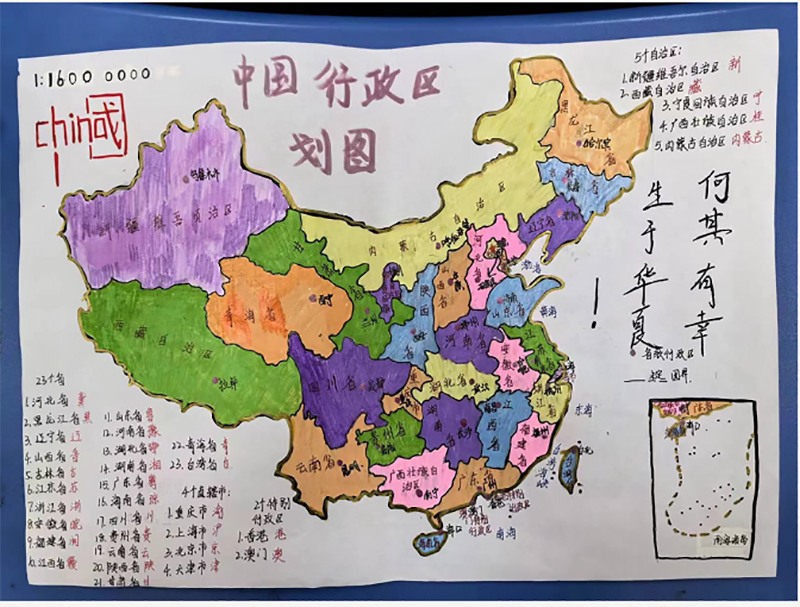 1:1600 0000
中国 行政区
划图
china
国
5个自治区:
1.新疆维吾尔自治区 新
2.西藏自治区 藏
3.宁夏回族自治区 宁
4.广西壮族自治区 桂
5.内蒙古自治区 内蒙古
何其有幸
生于华夏
!
黑龙江省
哈尔滨
吉林省
辽宁省
内蒙古自治区
新疆维吾尔自治区
乌鲁木齐
甘肃省
青海省
西宁
西藏自治区
拉萨
陕西省
山西省
河北省
山东省
河南省
江苏省
安徽省
四川省
湖北省
湖南省
长沙
江西省
浙江省
福建省
贵州省
云南省
昆明
广西壮族自治区
南宁
广东省
海口
黄海
东海
南海
台湾海峡
省级行政区
国界
南海诸岛
23个省
1.河北省 冀
2.黑龙江省 黑
3.辽宁省 辽
4.山西省 晋
5.吉林省 吉
6.江苏省 苏
7.浙江省 浙
8.安徽省 皖
9.福建省 闽
10.江西省 赣
11.山东省 鲁
12.河南省 豫
13.湖北省 鄂
14.湖南省 湘
15.广东省 粤
16.海南省 琼
17.四川省 川
18.贵州省 贵
19.云南省 云
20.陕西省 陕
21.甘肃省 甘
22.青海省 青
23.台湾省 台
4个直辖市:
1.重庆市 渝
2.上海市 沪
3.北京市 京
4.天津市 津
2个特别
行政区
1.香港 港
2.澳门 澳